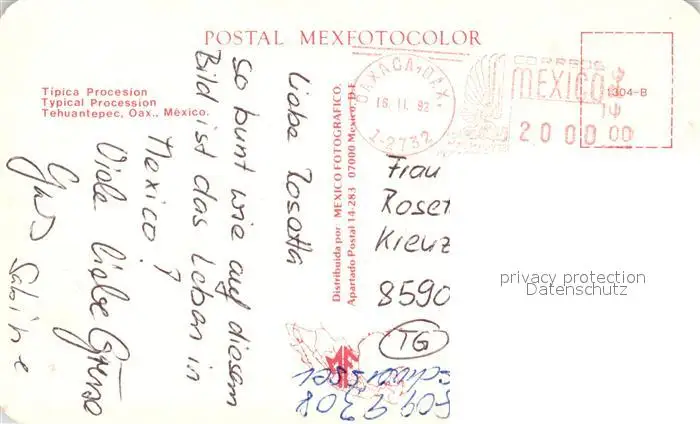 POSTAL MEXFOTOCOLOR
Típica Procesion
Typical Procession
Tehuantepec, Oax., México.
Liebe Rosetta
so bunt wie auf diesem
Bild ist das Leben in
Mexico!
Viele liebe Grüsse
Sabine
Distribuida por MEXICO FOTOGRAFICO.
Apartado Postal 14-283 07000 Mexico, D.F.
OAXACA, OAX.
16 II. 92
1-2732
CORREOS
MEXICO
2000.00
1304-B
Frau
Roset
Kreuz
8590
TG
privacy protection
Datenschutz